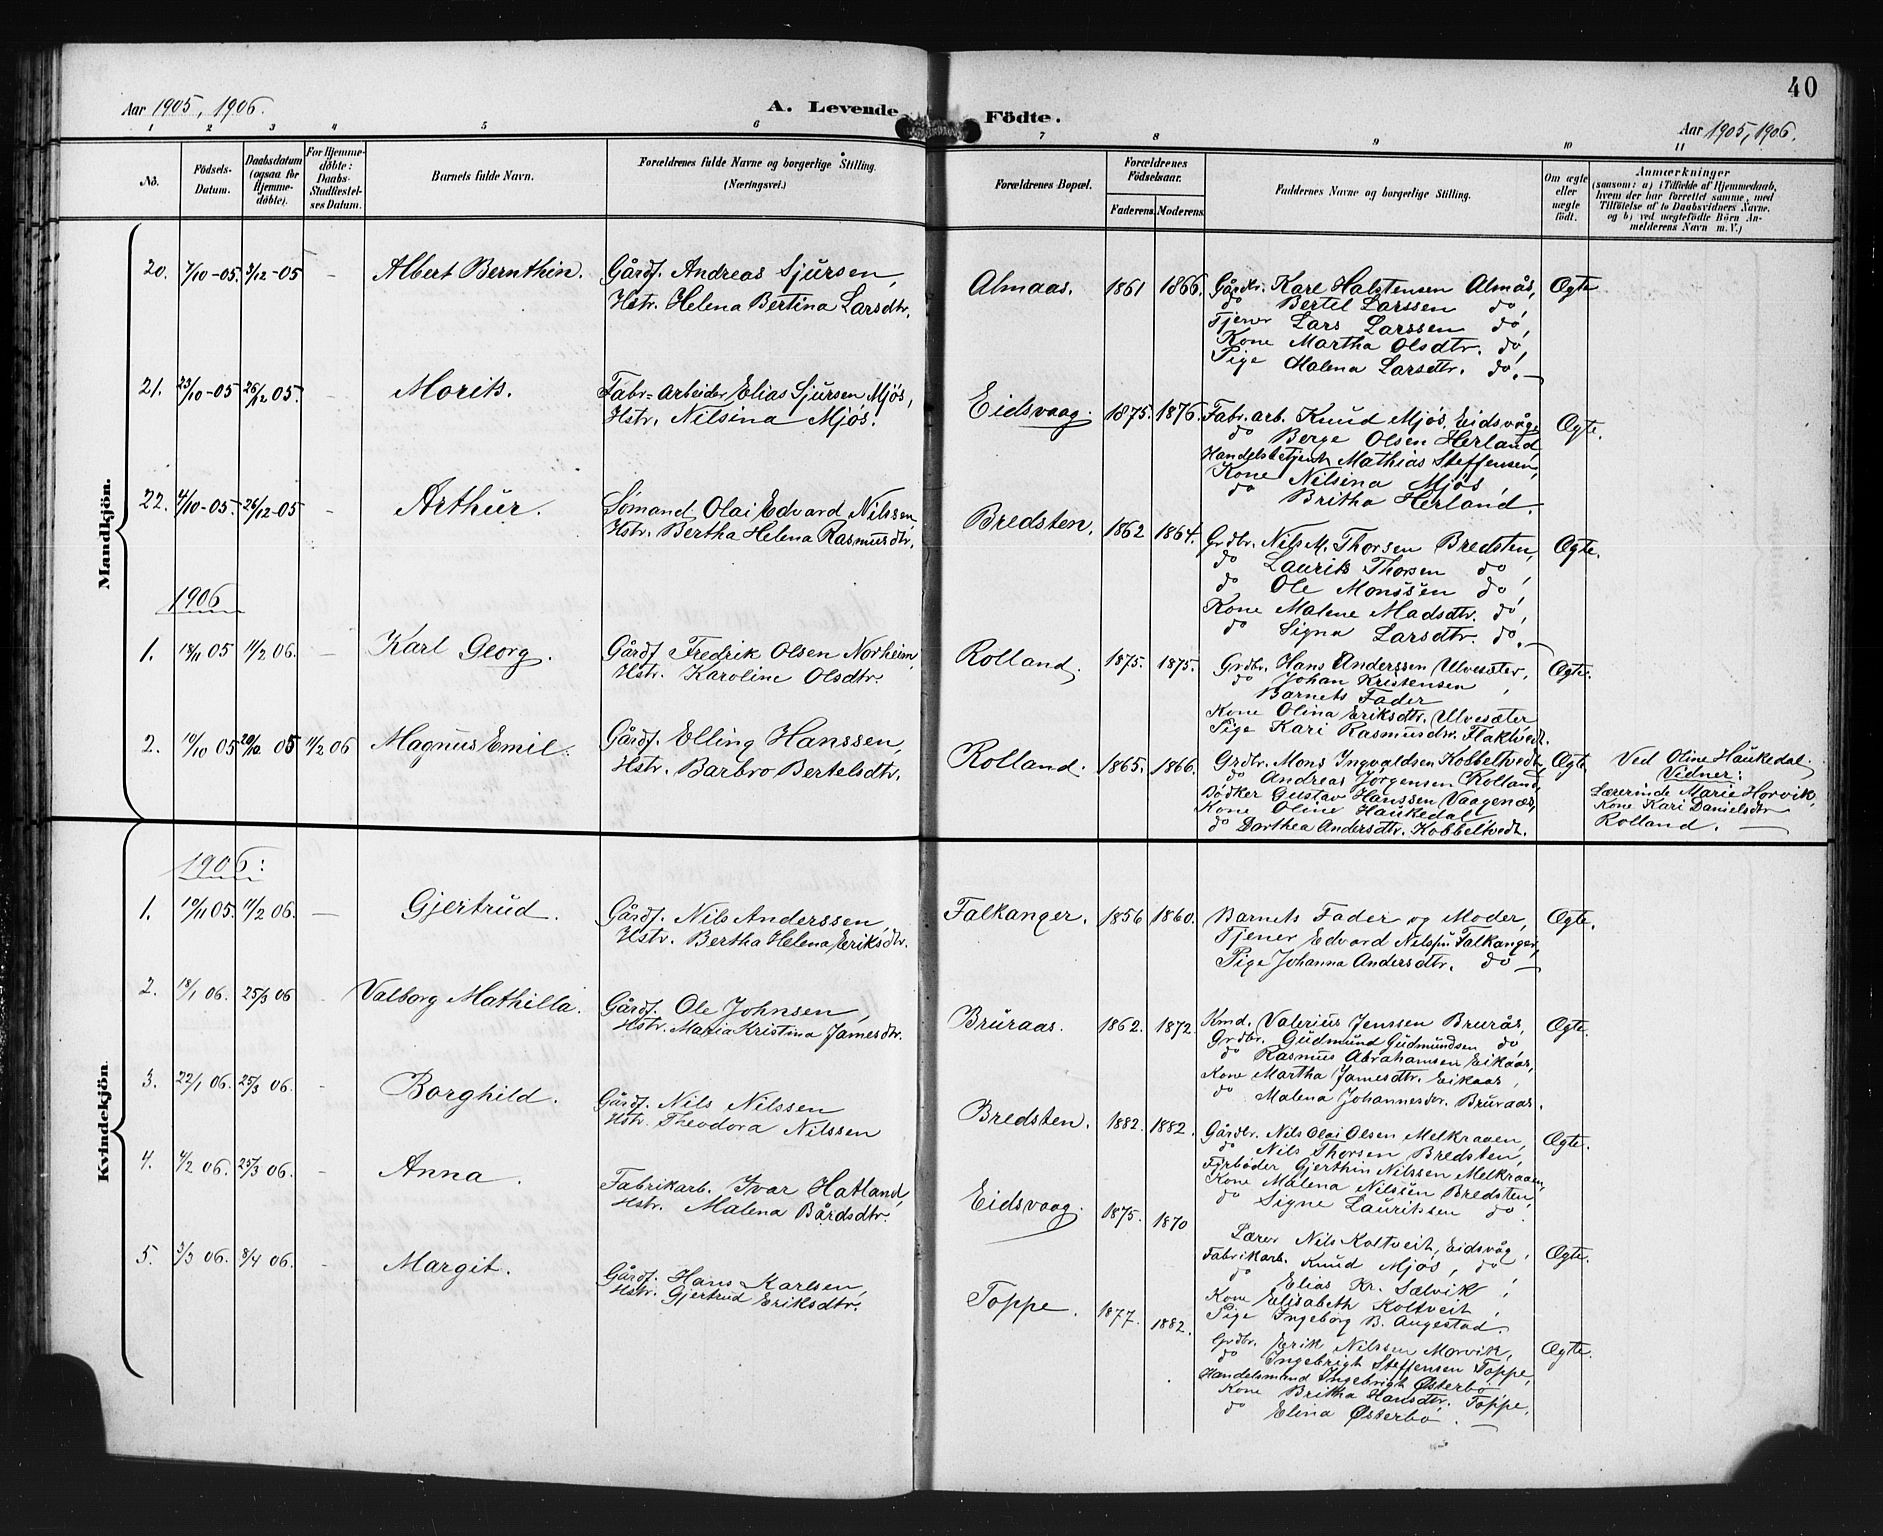 40
Aar 1905, 1906.
A. Levende Födte.
Aar 1905, 1906.
1 2 3 4 5 6 7 8 9 10 11
No.
Födsels-Datum.
Daabsdatum (ogsaa for Hjemmedöbte).
For Hjemmedöbte: Daabs-Stadfæstelses Datum.
Barnets fulde Navn.
Forældrenes fulde Navne og borgerlige Stilling. (Næringsvei.)
Forældrenes Bopæl.
Forældrenes Födselsaar.
Faderens. Moderens.
Faddernes Navne og borgerlige Stilling.
Om ægte eller uægte födt.
Anmærkninger
(saasom: a) i Tilfælde af Hjemmedaab,
hvem der har forrettet samme, med
Tilföielse af to Daabsvidners Navne,
og b) ved uægtefödte Börn An-
melderens Navn m. V.)
Mandkjön.
20. 7/10-05. 3/12-05 - Albert Bernthin. Gårdf. Andreas Sjursen,
Hstr. Helena Bertina Larsdtr.
Almaas. 1861 1866.
Gårdbr. Karl Halstensen Almås,
do Bertel Larssen do,
Tjener Lars Larssen do,
Kone Martha Olsdtr. do,
Pige Malena Larsdtr. do. —
Ægte
21. 23/10-05 26/12 05. - Morits. Fabr=Arbeider Elias Sjursen Mjøs,
Hstr. Nilsina Mjøs.
Eidsvaag. 1875. 1876.
Fabr.arb. Knud Mjøs, Eidsvåg,
do Berge Olsen Herland,
Handelsbetjent Mathias Steffensen,
Kone Nilsina Mjøs,
do Britha Herland.
Ægte.
22. 4/10-05. 26/12-05 - Arthur. Sømand Olai Edvard Nilssen,
Hstr. Bertha Helena Rasmusdtr.
Bredsten. 1862 1864.
Grdbr. Nils M. Thorsen Bredsten,
do Laurits Thorsen do,
do Ole Monssen do,
Kone Malene Madsdtr. do,
do Signa Larsdtr. do. —
Ægte.
1906
1. 18/11 05 11/2 06. - Karl Georg. Gårdf. Fredrik Olsen Norheim,
Hstr. Karoline Olsdtr.
Rolland. 1875. 1875.
Grdbr. Hans Anderssen Ulvesæter,
do Johan Kristensen,
Barnets Fader
Kone Olina Eriksdtr. Ulvesæter
Pige Kari Rasmusdtr. Flaktvedt.
Ægte.
2. 10/10 05 05 11/2 06 Magnus Emil. Gårdf. Elling Hanssen,
Hstr. Barbro Bertelsdtr.
Rolland. 1865. 1866.
Grdbr. Mons Ingvaldsen Kobbeltvedt,
do Andreas Jørgensen Rolland,
Bødker Gustav Hanssen Vaagenæs,
Kone Oline Haukedal
do Dorthea Andersdtr. Kobbeltvedt.
Ægte.
Ved Oline Haukedal.
Vidner:
Lærerinde Marie Horvik,
Kone Kari Danielsdtr
Rolland. —
Kvindekjön.
1906:
1. 10/11 05. 11/2 06. — Gjertrud. Gårdf. Nils Anderssen,
Hstr. Bertha Helena Eriksdtr.
Falkanger. 1856 1860.
Barnets Fader og Moder,
Tjener Edvard Nilssen Falkanger,
Pige Johanna Andersdtr. do —
Ægte.
2. 18/1 06. 25/3 06 - Valborg Mathilla. Gårdf. Ole Johnsen,
Hstr. Maria Kristina Jamesdtr.
Bruraas. 1862. 1872.
Kmd. Valerius Jenssen Brurås,
Grdbr. Gudmund Gudmundsen do
do Rasmus Abrahamsen Eikaas,
Kone Martha Jamesdtr. Eikaas,
do Malena Johannesdtr. Bruraas.
Ægte.
3. 22/1 06. 25/3 06. - Borghild. Gårdf. Nils Nilssen
Hstr. Theodora Nilssen
Bredsten. 1882. 1882.
Gårdbr. Nils Olai Olsen Melkraaen,
do Nils Thorsen Bredsten,
Fyrbøder Gjerthin Nilssen Melkraaen,
Kone Malena Nilssen Bredsten,
do Signe Lauritssen do.
Ægte.
4. 4/2 06. 25/3 06. - Anna. Fabrikarb. Ivar Hatland,
Hstr. Malena Bårdsdtr.
Eidsvaag. 1875. 1870
Lærer Nils Koltveit, Eidsvåg,
Fabrikarb. Knud Mjøs, do
do Elias Kr. Sælvik,
Kone Elisabeth Koltveit,
Pige Ingeborg B. Augestad.
Ægte.
5. 3/3 06. 8/4 06. - Margit. Gårdf. Hans Karlsen,
Hstr. Gjertrud Eriksdtr.
Toppe. 1877. 1882.
Grdbr. Erik Nilssen Morvik,
do Ingebrigt Steffensen Toppe,
Handelsmand Ingebrigt Østerbø,
Kone Britha Hansdtr. Toppe,
do Elina Østerbø. —
Ægte.